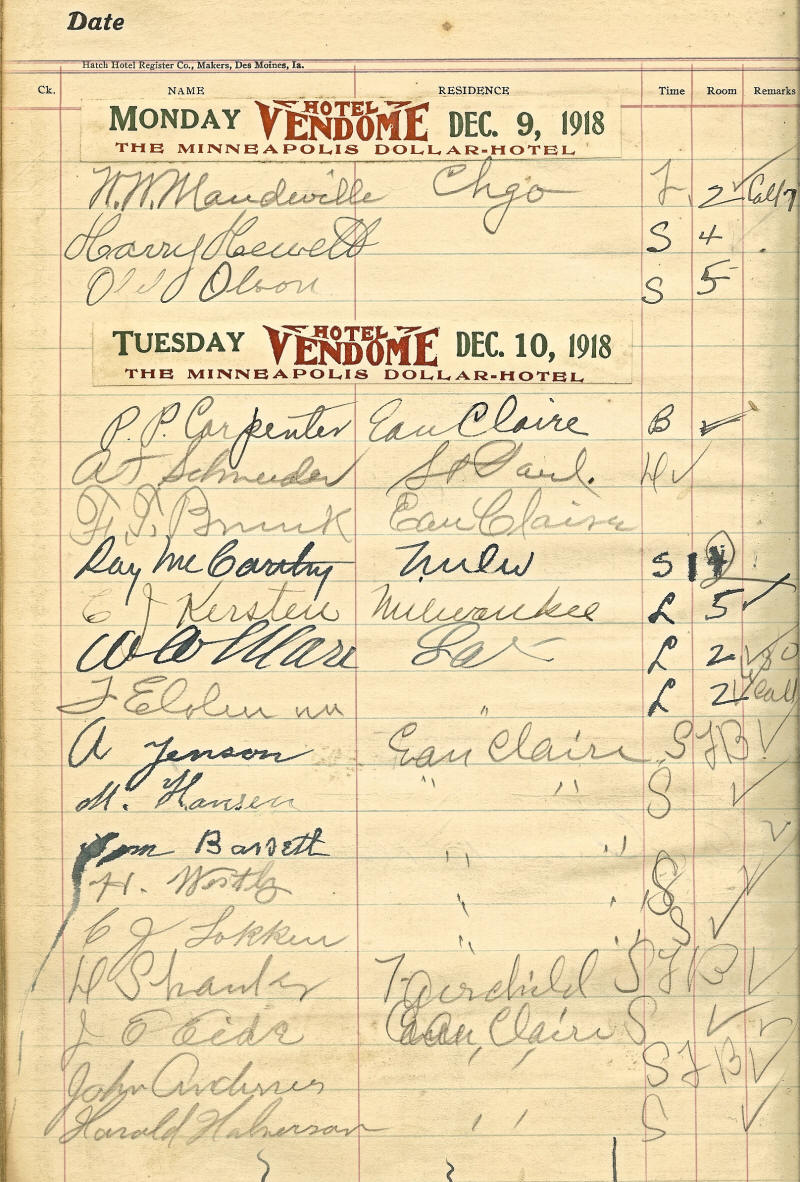 Date
Hatch Hotel Register Co., Makers, Des Moines, Ia.
Ck. NAME RESIDENCE Time Room Remarks
MONDAY HOTEL VENDOME DEC. 9, 1918
THE MINNEAPOLIS DOLLAR-HOTEL
W.W. Mandeville Chgo 2 ✓ Call 7
Harry Hewett S 4
Olson S 5
TUESDAY HOTEL VENDOME DEC. 10, 1918
THE MINNEAPOLIS DOLLAR-HOTEL
P. P. Carpenter Eau Claire B ✓
Schneider St Paul. ✓
Eau Claire
Ray McCarthy Milw S
C J Kersten Milwaukee L 5 ✓
L 2 ✓
" L 2 ✓ Call
A Jenson Eau Claire S ✓
M. Hansen " " S ✓
Bassett " " ✓
H. Westby " " S ✓
C J Lokken " " S ✓
H Shanks Fairchild S ✓
J Eide Eau Claire S ✓
John " " S ✓
Harald Halverson " " S ✓